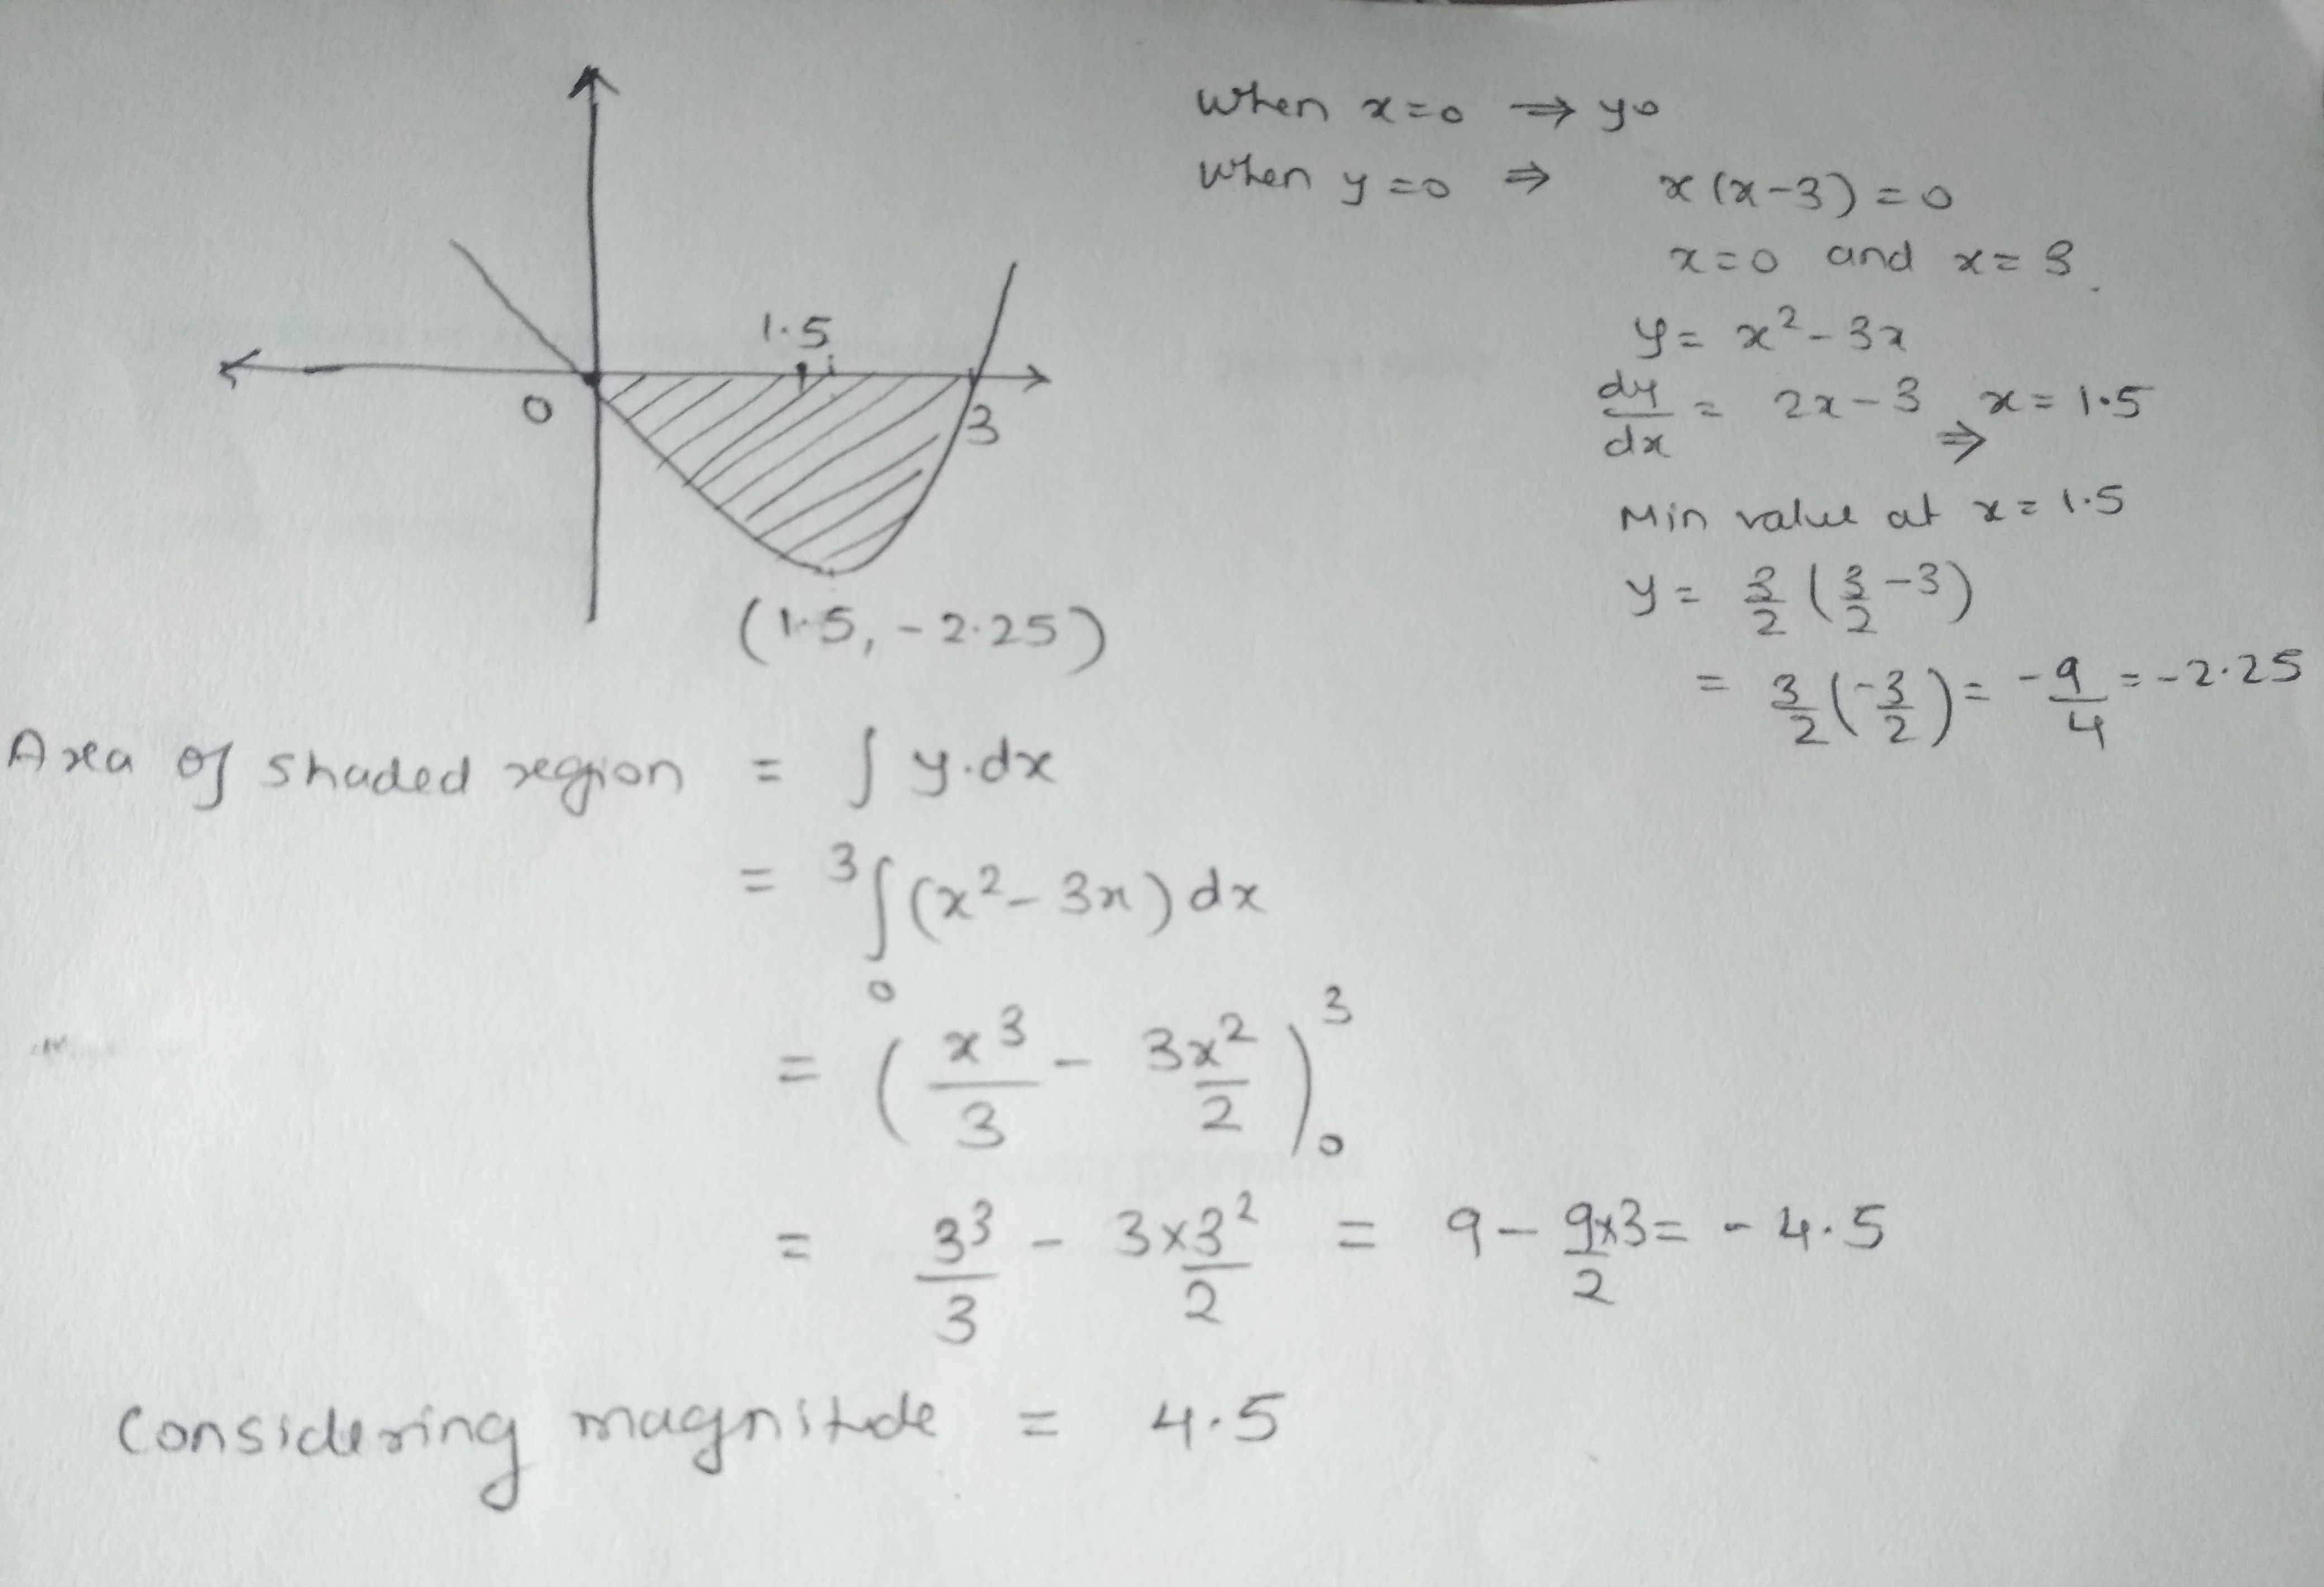 when x=0 ⇒ y0
when y=0 ⇒ x(x-3)=0
x=0 and x=3
y= x²-3x
dy/dx = 2x-3 ⇒ x=1.5
Min value at x=1.5
y= 3/2 (3/2 -3)
= 3/2 (-3/2) = -9/4 = -2.25
1.5
0
3
(1.5, -2.25)
Area of shaded region = ∫ y.dx
= ³∫₀ (x²-3x)dx
= (x³/3 - 3x²/2)³₀
= 3³/3 - 3×3²/2 = 9 - 9×3/2 = -4.5
Considering magnitude = 4.5